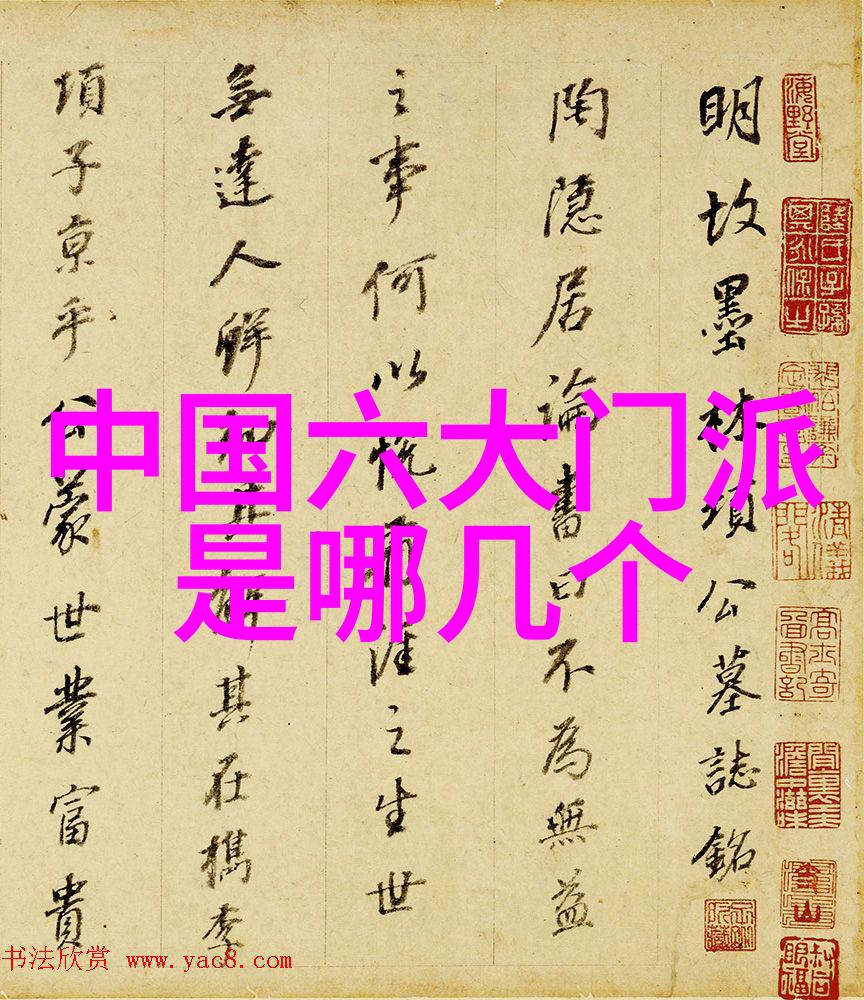 明故墨林項公墓誌銘
陶隱居論書曰不為無益
之事何以悅有涯之生世
無達人鮮知其解其在檇李
項子京乎公蒙世業富貴
中国六大门派
是哪几个
海野堂
书法欣赏 www.yac8.com